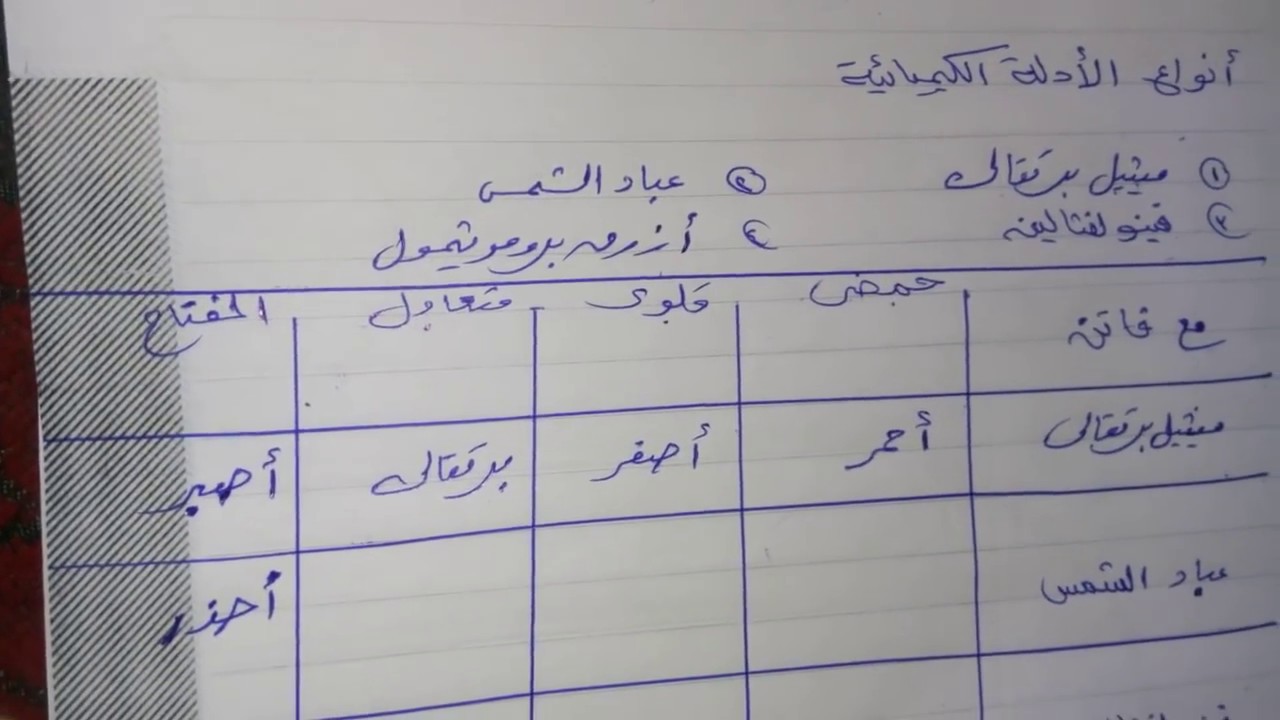 أنواع الأدلة الكيميائية
١ ميثيل برتقالى ٣ عباد الشمس
٢ فينولفثالين ٤ أزرق بروموثيمول
مع فاتن حمضى قلوى متعادل المفتاح
ميثيل برتقالى أحمر أصفر برتقالى أصبر
عباد الشمس